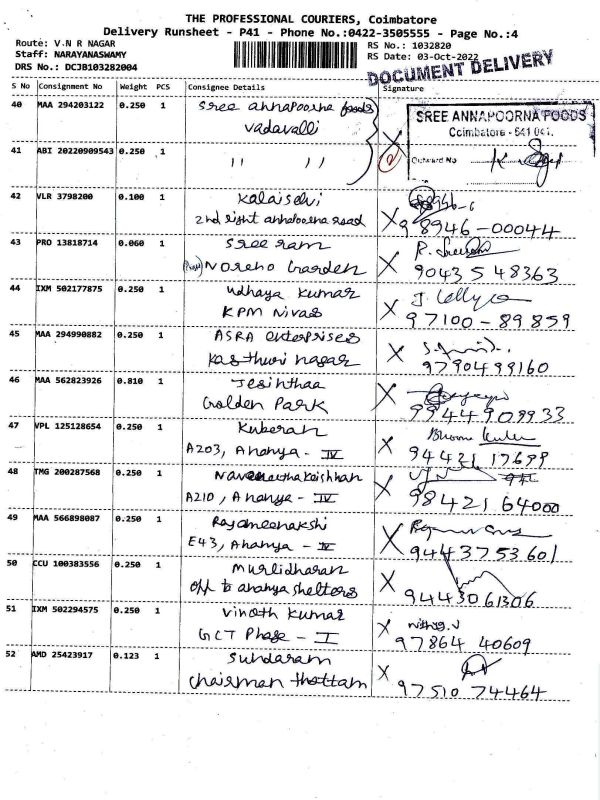 THE PROFESSIONAL COURIERS, Coimbatore
Delivery Runsheet - P41 - Phone No.:0422-3505555 - Page No.:4
Route: V.N R NAGAR
Staff: NARAYANASWAMY
DRS No.: DCJB103282004
RS No.: 1032820
RS Date: 03-Oct-2022
DOCUMENT DELIVERY
S No Consignment No Weight PCS Consignee Details Signature
40 MAA 294203122 0.250 1 Sree annapoorna foods
vadavalli
SREE ANNAPOORNA FOODS
Coimbatore - 641 041.
Outward No
41 ABI 20220909543 0.250 1 " "
42 VLR 3798200 0.100 1 Kalaiselvi
2nd right annapoorna road
X 98946-00044
43 PRO 13818714 0.060 1 Sree ram
Noreho Garden
X 90435 48363
44 IXM 502177875 0.250 1 Udhaya Kumar
KPM Nivas
X 97100-89859
45 MAA 294990882 0.250 1 ASRA enterprises
Kasthuri nagar
X 9790499160
46 MAA 562823926 0.810 1 Jesinthaa
Golden Park
X 9944909933
47 VPL 125128654 0.250 1 Kuberan
A203, Ananya - IV
X 94421 17699
48 TMG 200287568 0.250 1 Navaneethakrishnan
A210, Ananya - IV
X 98421 64000
49 MAA 566898087 0.250 1 Rajameenakshi
E43, Ananya - IV
X 9443753601
50 CCU 100383556 0.250 1 Murlidharan
Off to ananya shelters
X 9443061306
51 IXM 502294575 0.250 1 Vinoth Kumar
GCT Phase - I
X 97864 40609
52 AMD 25423917 0.123 1 Sundaram
Chairman thottam
X 97510 74464